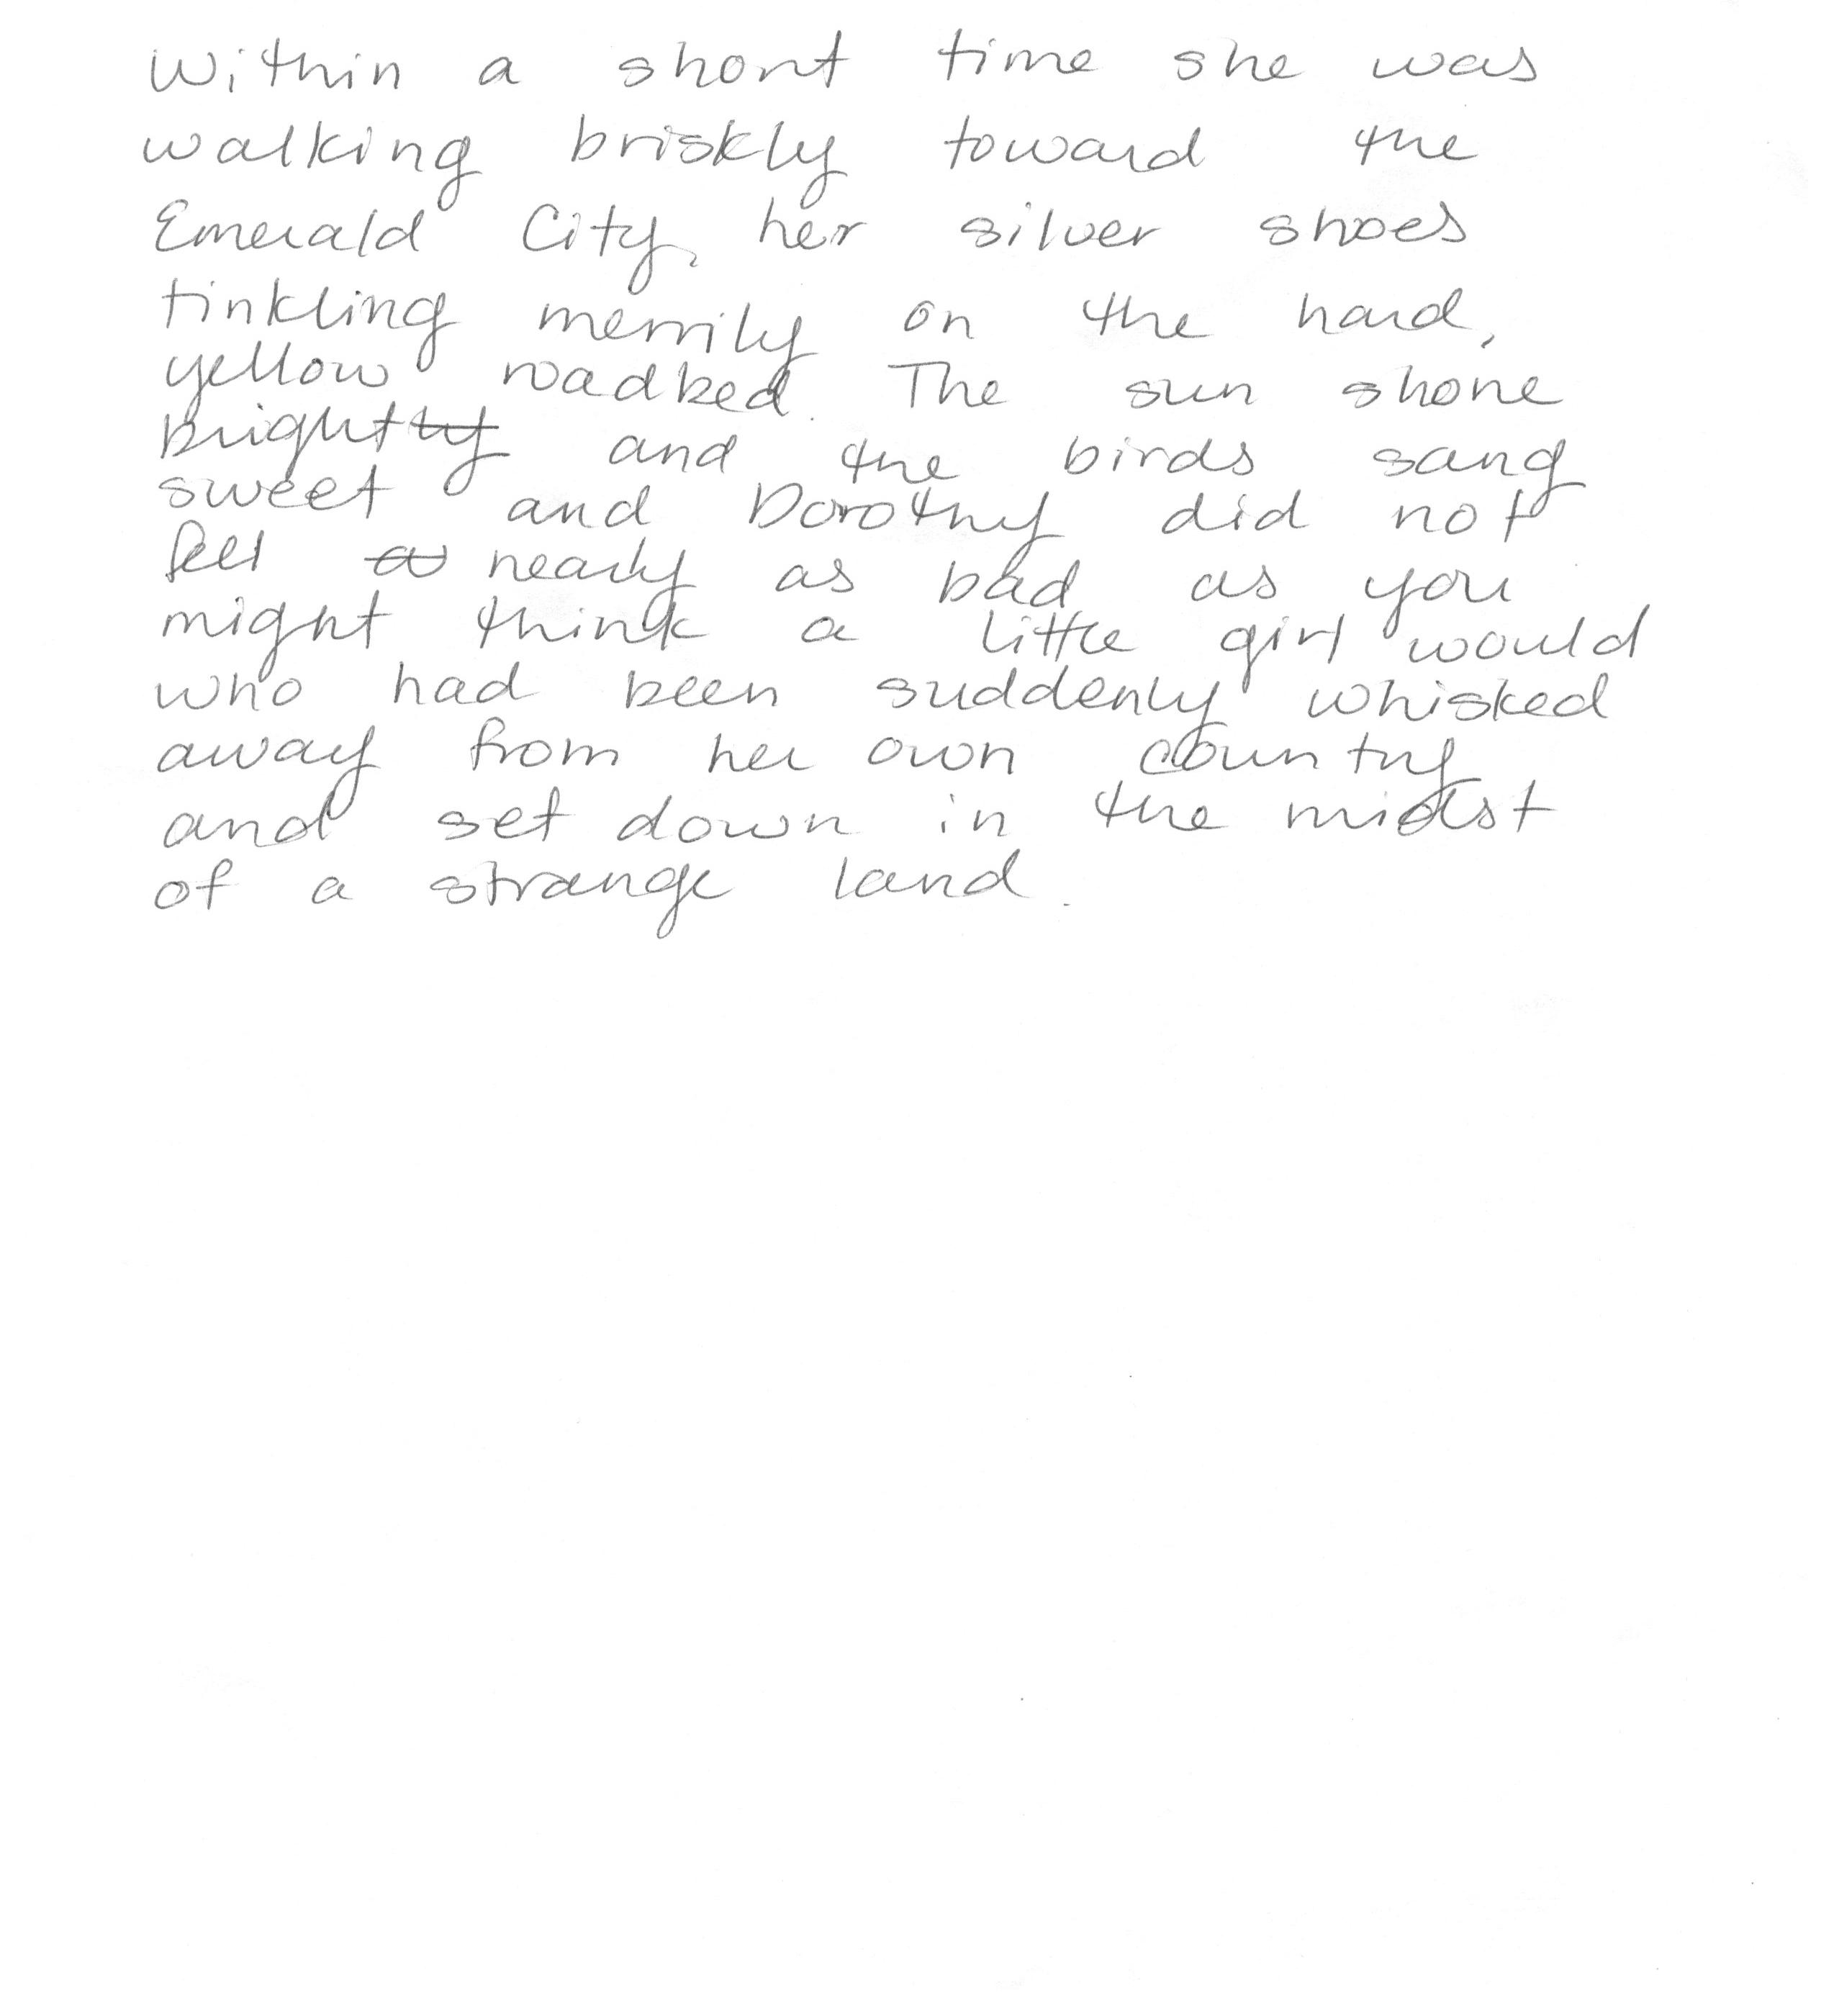 Within a short time she was
walking briskly toward the
Emerald City, her silver shoes
tinkling merrily on the hard,
yellow roadbed. The sun shone
bright and the birds sang
sweet and Dorothy did not
feel nearly as bad as you
might think a little girl would
who had been suddenly whisked
away from her own country
and set down in the midst
of a strange land.